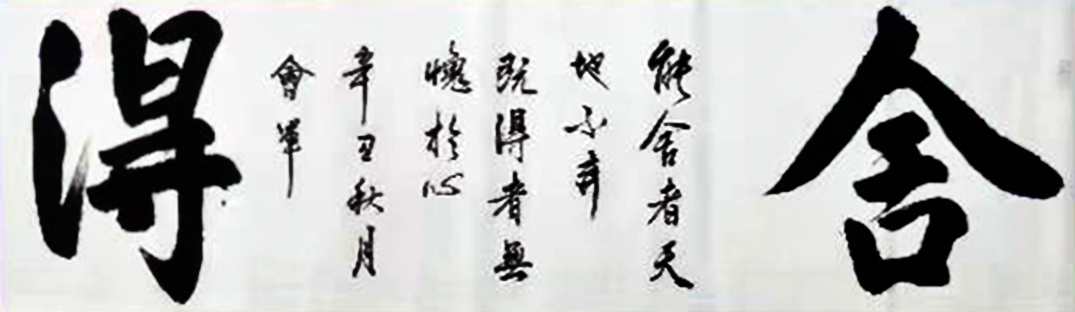 舍
能舍者天
地不弃
既得者無
愧於心
辛丑秋月
會軍
得